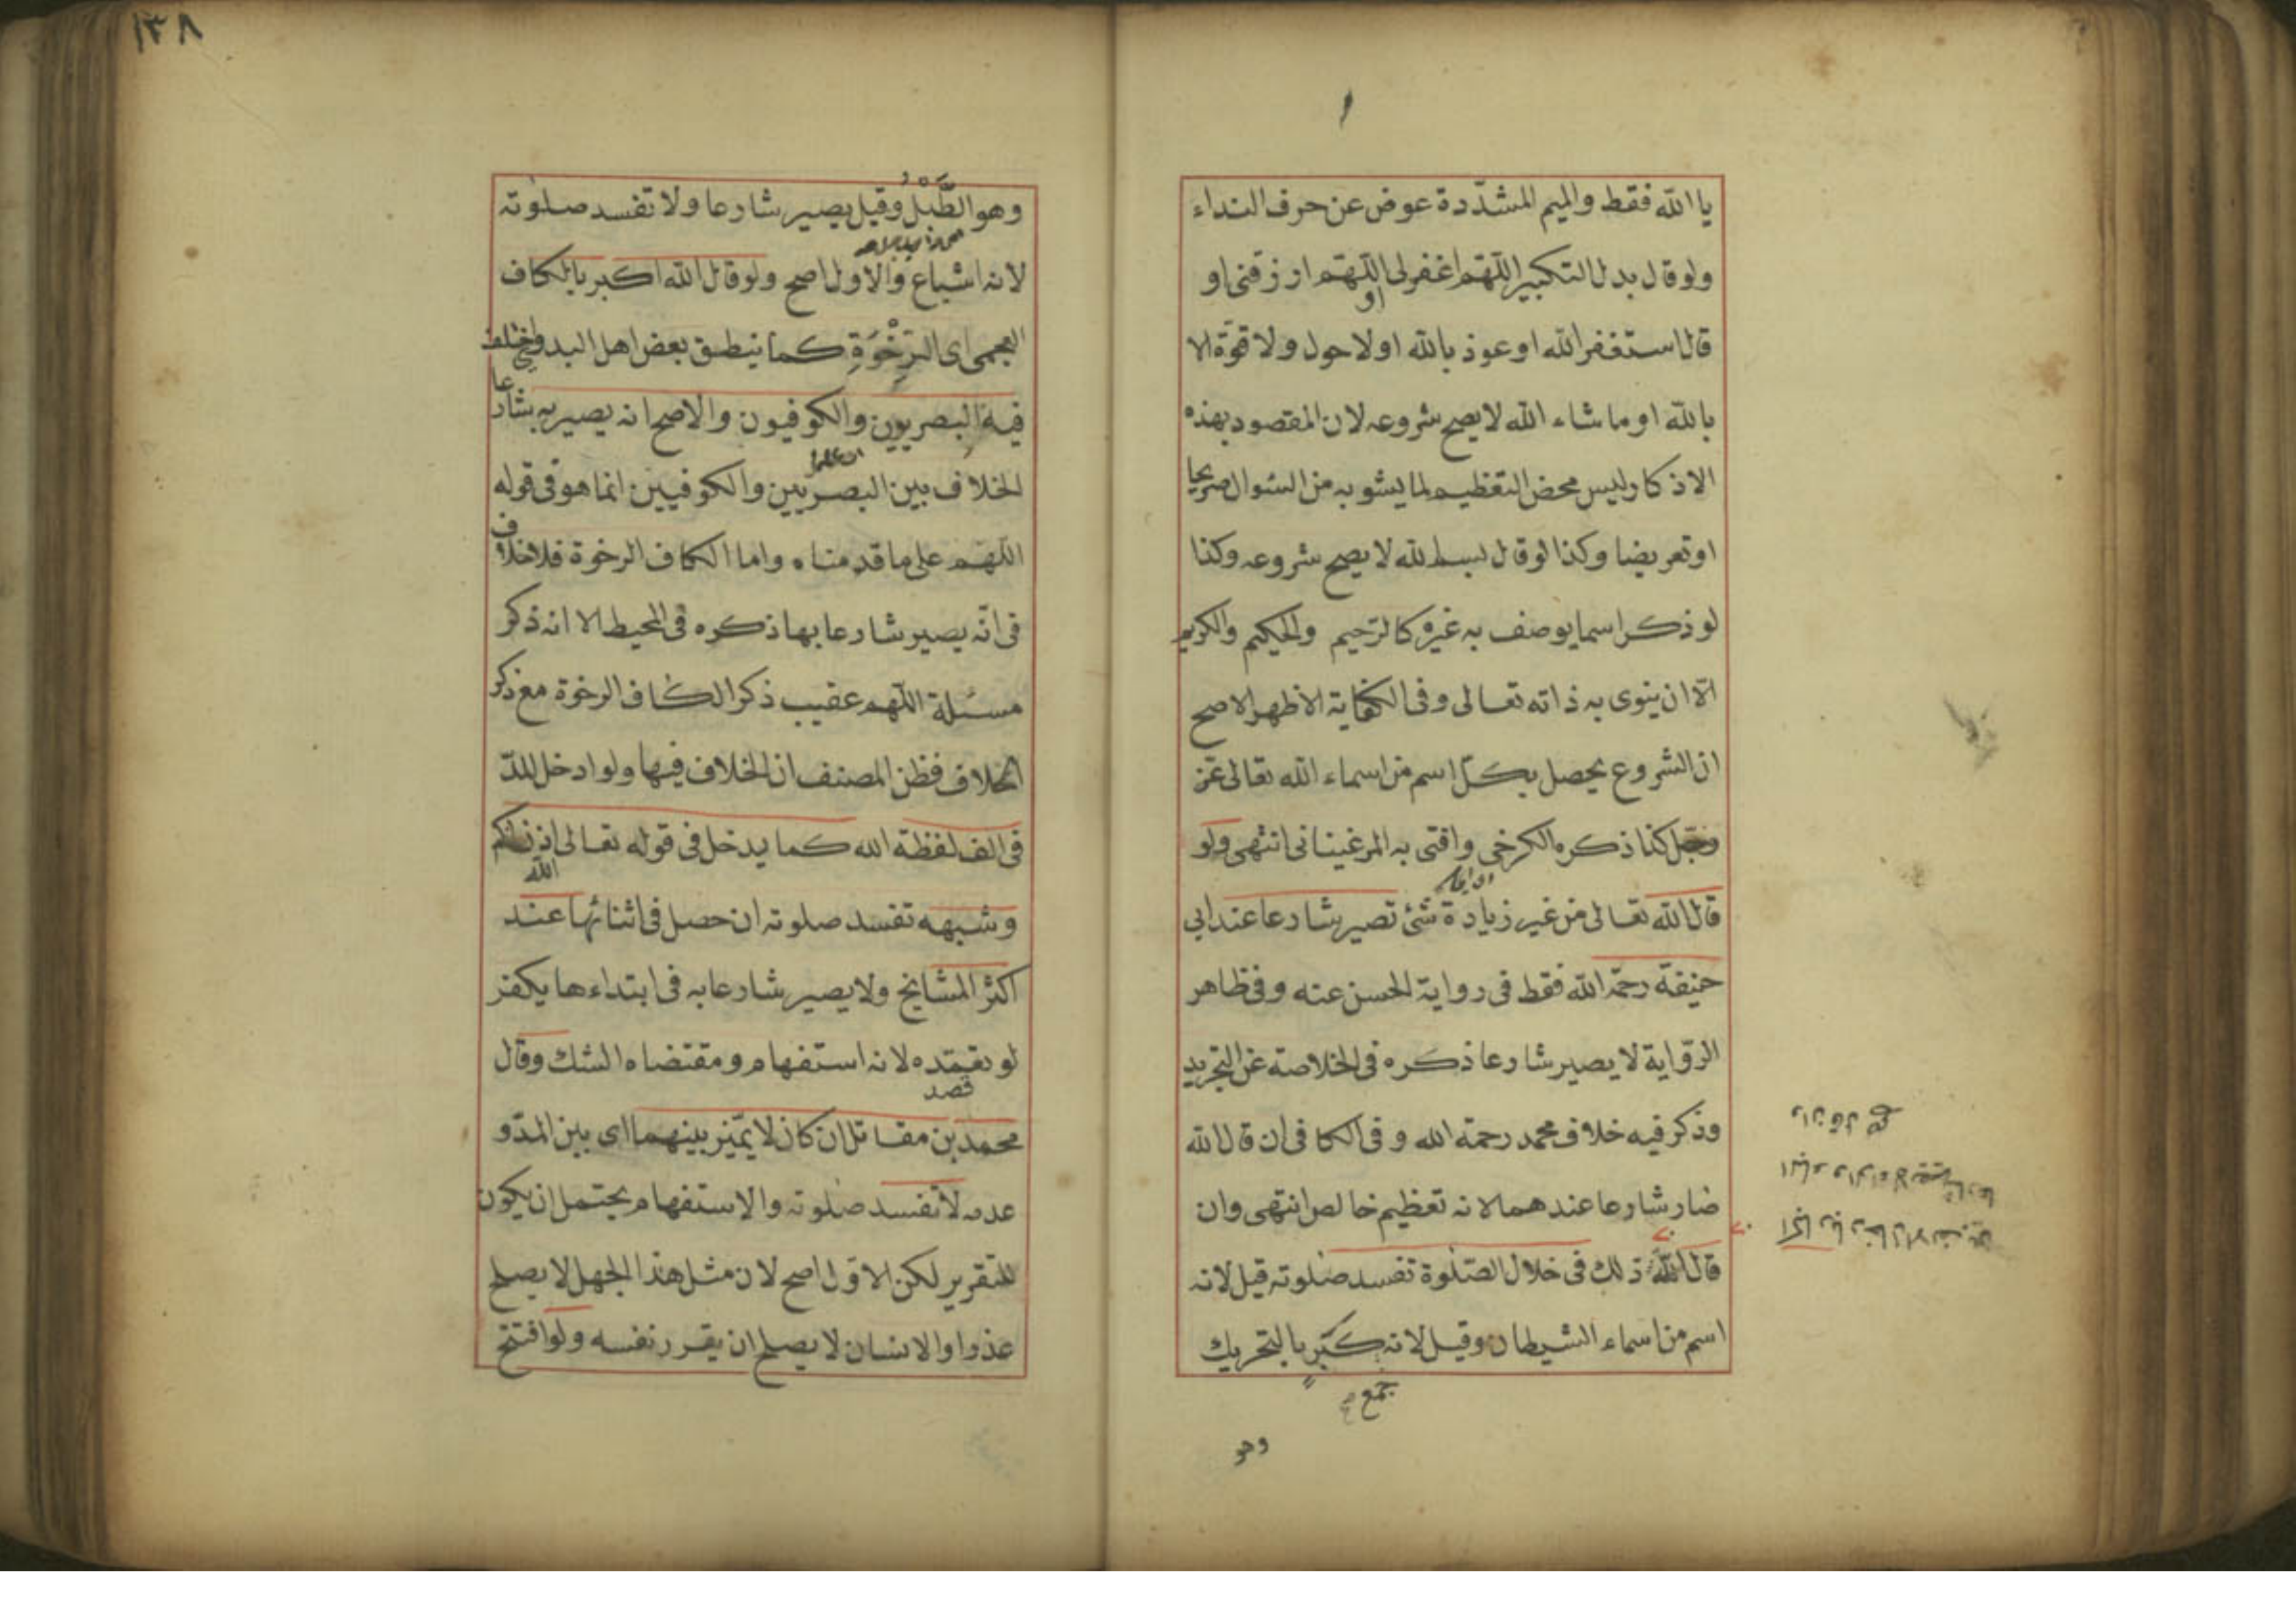 يا الله فقط والميم المشدّدة عوض عن حرف النداء
ولو قال بدل التكبير اللّهمّ اغفر لى اللّهمّ ارزقنى او
او
قال استغفر الله او عوذ بالله او لا حول ولا قوّة الا
بالله او ما شاء الله لا يصح شروعه لان المقصود بهذه
الاذكار ليس محض التعظيم لما يشوبه من السئوال صريحا
او تعريضا وكذا لو قال بسم الله لا يصح شروعه وكذا
لو ذكر اسما يوصف به غيره كالرّحيم والحكيم والكريم
الّا ان ينوى به ذاته تعالى وفى الكفاية الاظهر الاصح
ان الشروع يحصل بكلّ اسم من اسماء الله تعالى عزّ
وجلّ كذا ذكره الكرخى وافتى به المرغينانى انتهى ولو
قال الله تعالى من غير زيادة شئ تصير شارعا عند ابى
حنيفة رحمه الله فقط فى رواية الحسن عنه وفى ظاهر
الرّواية لا يصير شارعا ذكره فى الخلاصة عن التجريد
وذكر فيه خلاف محمد رحمة الله وفى الكافى ان قال الله
صار شارعا عندهما لانه تعظيم خالص انتهى وان
قال الله ذلك فى خلال الصّلوة تفسد صلوته قيل لانه
اسم من اسماء الشيطان وقيل لانه كبر بالتحريك
جمع
وهو
١٣٨
وهو الطَّبْلُ وقيل يصير شارعا ولا تفسد صلوته
لانه اشباع والاول اصح ولو قال الله اكبر بالكاف
العجمى اى الرِّخْوَةِ كما ينطق بعض اهل البدو اختلف
فيه البصريون والكوفيون والاصح انه يصير به شارعا
الخلاف بين البصريين والكوفيين انما هو فى قوله
اللّهمّ على ما قدمناه واما الكاف الرخوة فلا خلاف
فى انّه يصير شارعا بها ذكره فى المحيط الا انه ذكر
مسئلة اللّهم عقيب ذكر الكاف الرخوة مع ذكر
الخلاف فظن المصنف ان الخلاف فيها ولو ادخل المدّ
فى الف لفظة الله كما يدخل فى قوله تعالى اذن لكم
الله
وشبهه تفسد صلوته ان حصل فى اثنائها عند
اكثر المشايخ ولا يصير شارعا به فى ابتداءها يكفر
لو تعمّده لانه استفهام ومقتضاه الشك وقال
قصد
محمد بن مقاتل ان كان لا يميّز بينهما اى بين المدّ و
عدمه لا تفسد صلوته والاستفهام يحتمل ان يكون
للتقرير لكن الاوّل اصح لان مثل هذا الجهل لا يصلح
عذرا والانسان لا يصلح ان يقرر نفسه ولو افتتح